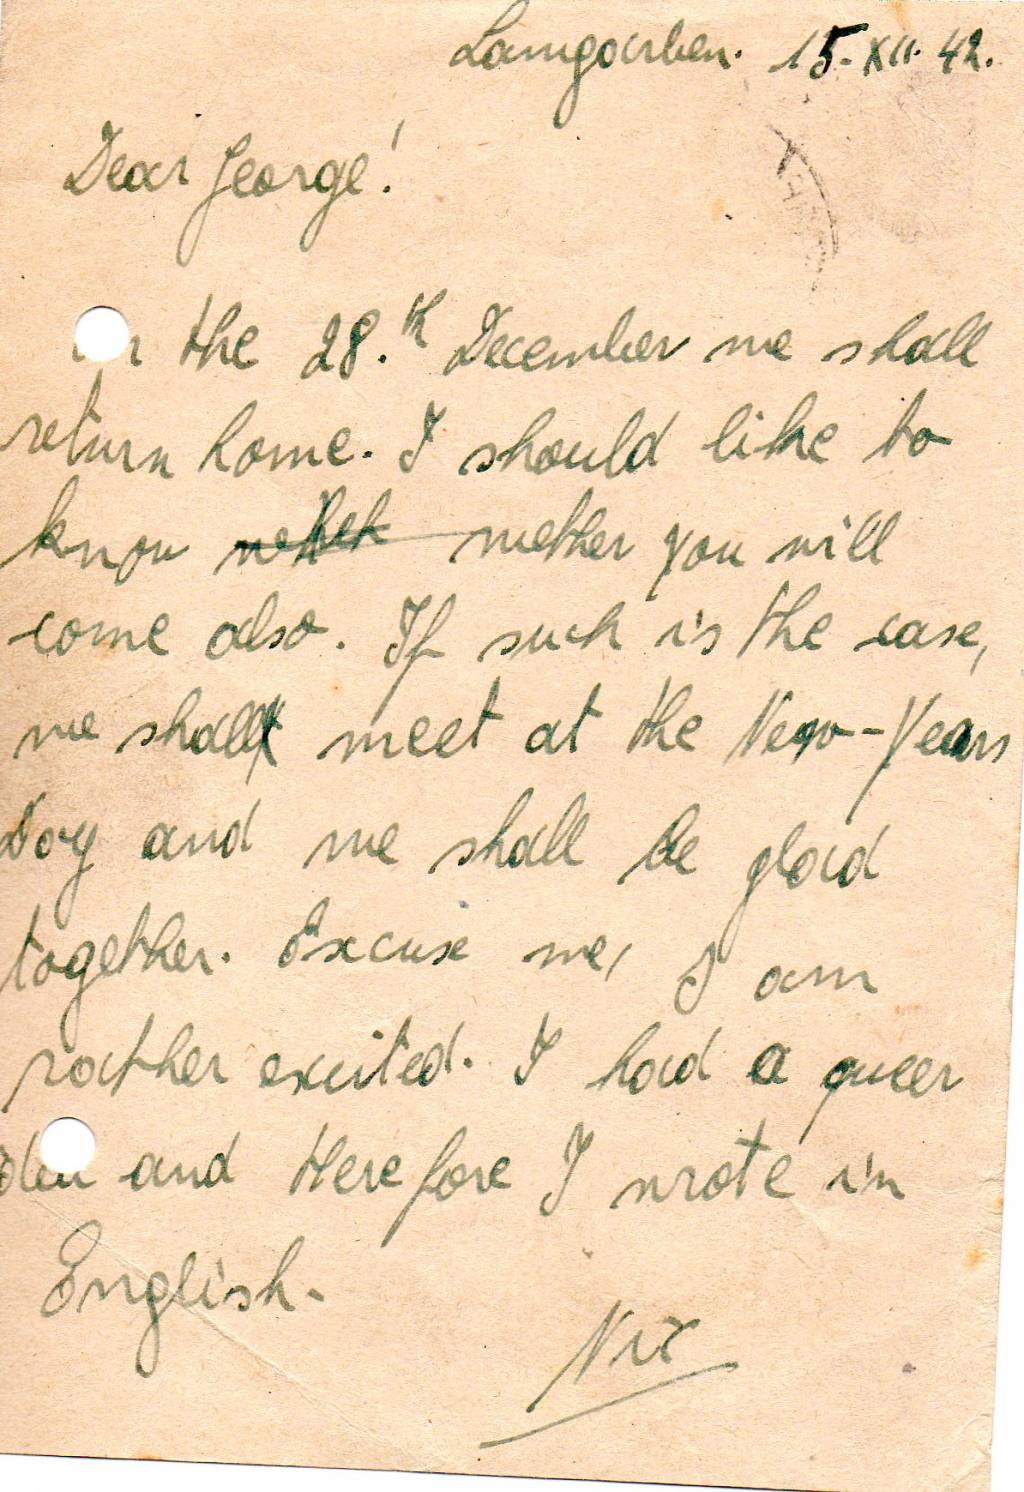 Lamgarben. 15.XII.42.
Dear George!
the 28.th December we shall
return home. I should like to
know mether you will
come also. If such is the case,
we shall meet at the New-Years
Day and we shall be glad
together. Excuse me, I am
rather excited. I had a queer
and therefore I wrote in
English.
Nix